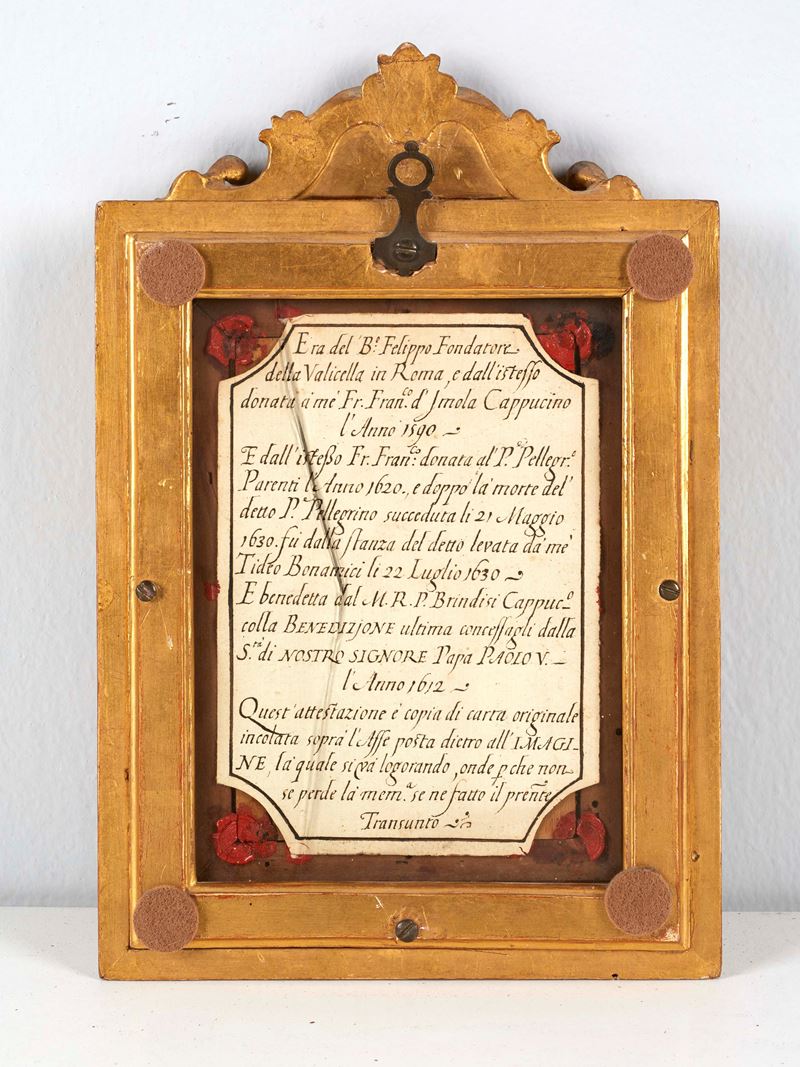 Era del B.º Felippo Fondatore
della Valicella in Roma, e dall'istesso
donata à me Fr. Fran.co d'Imola Cappucino
l'Anno 1590.
E dall'istesso Fr. Fran.co donata al P. Pellegr.º
Parenti l'Anno 1620., e doppo la morte del
detto P. Pellegrino succeduta li 21 Maggio
1630. fù dalla stanza del detto levata da me
Tideo Bonamici li 22 Luglio 1630
E benedetta dal M. R. P. Brindisi Cappuc.º
colla BENEDIZIONE ultima concessagli dalla
S.tà di NOSTRO SIGNORE Papa PAOLO V.
l'Anno 1612
Quest'attestazione è copia di carta originale
incolata sopra l'Asse posta dietro all'IMAGI-
NE, la quale si và logorando, onde p che non
se perde la mem.a se ne fatto il pren͂te
Transunto